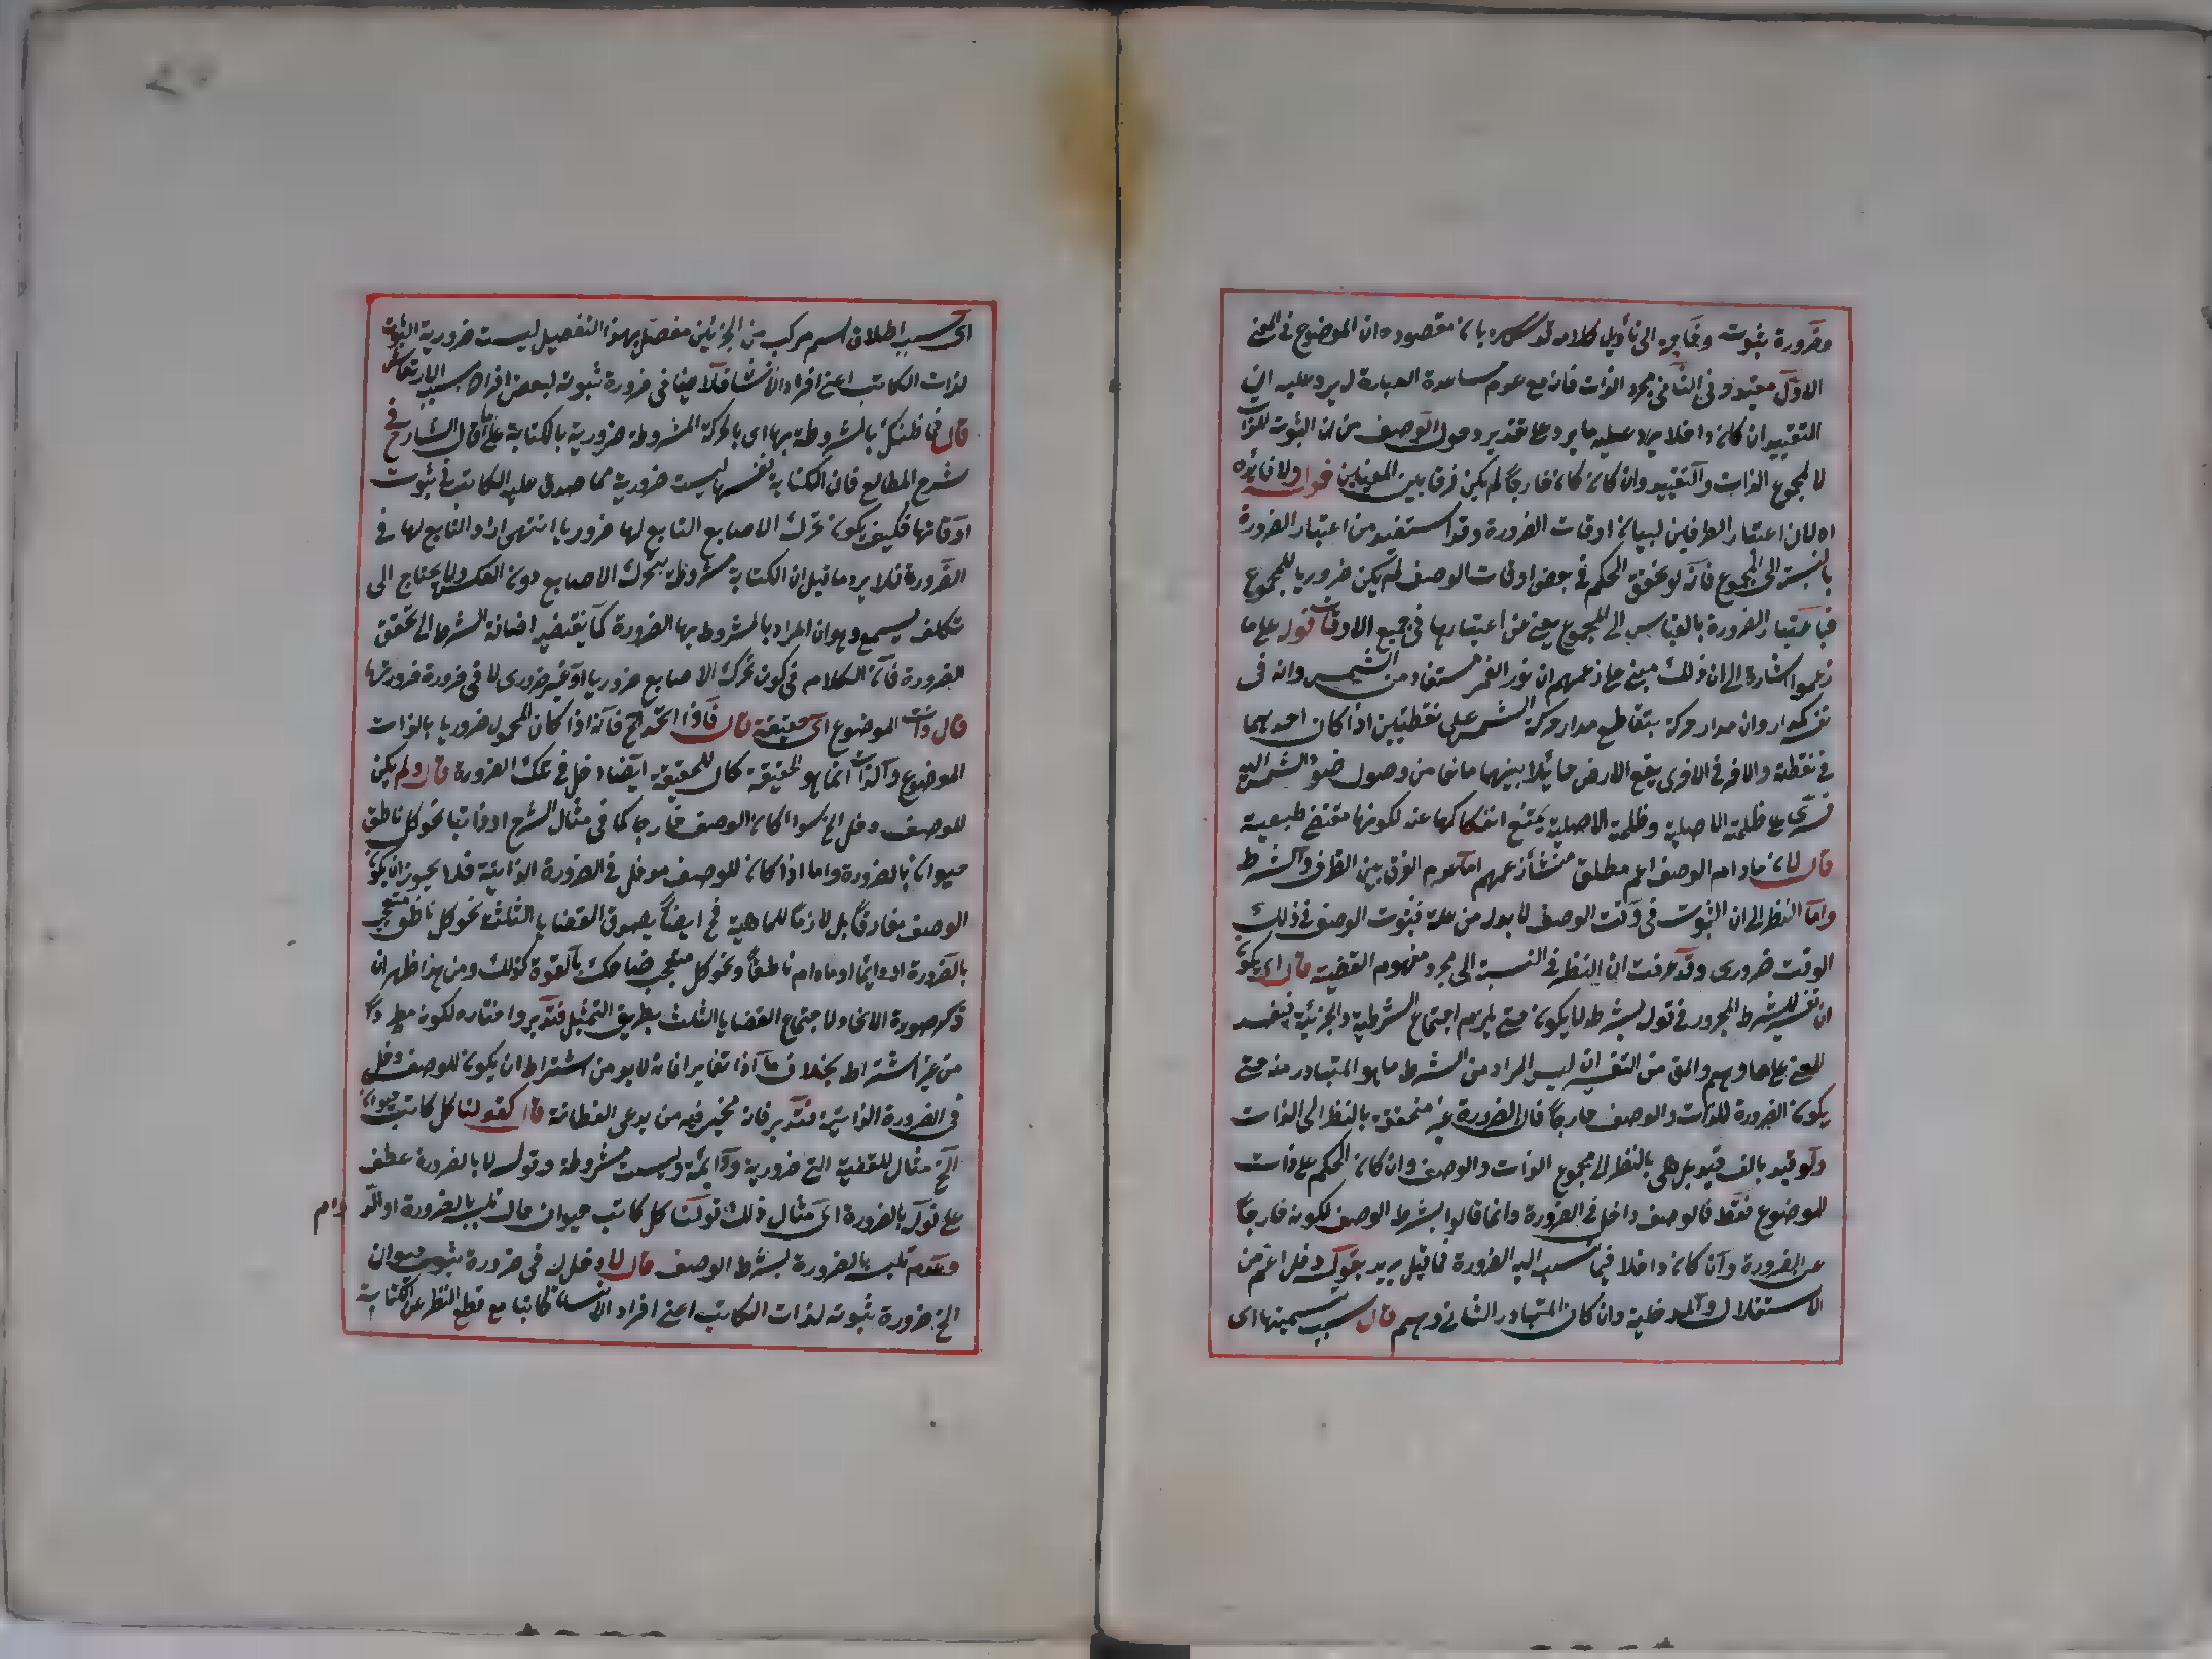 وضرورة ثبوت وحاجه الى تأويل كلامه قدس سره بان مقصوده ان الموضوع فى المعنى
الاول مقيد وفى الثانى مجرد الذات فانه مع عدم مساعدة العبارة له يرد عليه ان
التقييد ان كان داخلا يرد عليه ما يرد على تقدير دخول الوصف من ان الثبوت للذات
لا لمجموع الذات والتقييد وان كان خارجا لم يكن فرقا بين المعنيين قوله ولا فائدة
اه لان اعتبار الطرفين لبيان اوقات الضرورة وقد استفيد من اعتبار الضرورة
بالنسبة الى المجموع فانه لو تحقق الحكم فى بعض اوقات الوصف لم يكن ضروريا للمجموع
فباعتبار الضرورة بالقياس الى المجموع يغنى عن اعتبارها فى جميع الاوقات قوله على ما
زعموا اشارة الى ان ذلك مبنى على زعمهم ان نور القمر مستفاد من الشمس وانه فى
وان مدار حركة يتقاطع مدار حركة الشمس على نقطتين اذا كان احدهما
فى نقطة والاخر فى الاخرى يقع الارض حائلا بينهما مانعا من وصول ضوء الشمس اليه
على ظلمة الاصلية وظلمة الاصلية يمتنع انفكاكها عنه لكونها مقتضى طبيعية
قال لان ما دام الوصف اعم مطلق منشأ زعمهم اما عدم الفرق بين الظرف والشرط
واما النظر الى ان الثبوت فى وقت الوصف لا بد له من علة فثبوت الوصف فى ذلك
الوقت ضرورى وقد عرفت ان النظر فى النسبة الى مجرد مفهوم القضية قال اى يكون
ان تفسير للشرط المجرور فى قوله بشرط لا يكون حتى يلزم اجتماع الشرطية والجزئية فيفسد
المعنى على ما وهم والمق من التفسير ان ليس المراد من الشرط ما هو المتبادر منه حتى
يكون الضرورة للذات والوصف خارجا فان الضرورة غير متحققة بالنظر الى الذات
ولو قيد بالف قيد بل هى بالنظر الى مجموع الذات والوصف وان كان الحكم على ذات
الموضوع فقط فالوصف داخل فى الضرورة وانما قالوا بشرط الوصف لكونه خارجا
عن الضرورة وان كان داخلا فيما نسب اليه الضرورة فما قيل يريد بقوله دخل اعم من
الاستقلال والمدخلية وان كان المتبادر الثانى وهم قال سبب تسميتها اى
اى حسب اطلاق اسم مركب من الجزئين مفصل بهذا التفصيل ليست ضرورية الثبوت
لذات الكاتب اعنى افراد الانسان فلا ينافى ضرورة ثبوته لبعض افراده بسبب الارتعاش
قال فما ظنك بالمشروطة بها اى بالحركة المشروطة ضرورية بالكتابة على ما قال الشارح فى
شرح المطالع فان الكتابة نفسها ليست ضرورية مما صدق عليه الكاتب فى ثبوت
اوقاتها فكيف يكون تحرك الاصابع التابع لها ضروريا انتهى اراد التابع لها فى
الضرورة فلا يرد ما قيل ان الكتابة مشروطة بتحرك الاصابع دون العكس ولا يحتاج الى
تكلف يسمع وهو ان المراد بالمشروط بها الضرورة كما يقتضيه اضافة الشرط الى تحقق
الضرورة فان الكلام فى كون تحرك الاصابع ضروريا او غير ضرورى لا فى ضرورة ضرورتها
قال ذات الموضوع اى حقيقة قال فاذا اتحد الخ فانه اذا كان المحمول ضروريا بالذات
الموضوع والذات انما هو الحقيقة كان للحقيقة ايضا دخل فى تلك الضرورة قال ولم يكن
للوصف دخل الخ سواء كان الوصف خارجا كما فى مثال الشرح او ذاتيا نحو كل ناطق
حيوان بالضرورة واما اذا كان للوصف مدخل فى الضرورة الذاتية فلا يجوز ان يكون
الوصف مفارقا بل لازما للماهية فح ايضا يصدق القضايا الثلث نحو كل ناطق متعجب
بالضرورة او دايما او ما دام ناطقا ونحو كل متعجب ضاحك بالقوة كذلك ومن هذا ظهر ان
ذكر صورة الاتحاد لاجتماع القضايا الثلث بطريق التمثيل فتدبر واختاره لكونه مطردا
من غير اشتراط بخلاف ما اذا تغايرا فانه لا بد من اشتراط ان يكون للوصف دخل
فى الضرورة الذاتية فتدبر فانه تحير فيه من يدعى الفطانة قال كقولنا كل كاتب حيوان
الخ مثال للقضية التى ضرورية ودائمة وليست مشروطة وقوله لا بالضرورة عطف
على قوله بالضرورة اى مثال ذلك قولنا كل كاتب حيوان حال تلبسه بالضرورة او الدوام
وعدم تلبسه بالضرورة بشرط الوصف قال لا دخل له فى ضرورة ثبوت حيوان
الخ ضرورة ثبوته لذات الكاتب اعنى افراد الانسان كاتبا مع قطع النظر عن الكتابة